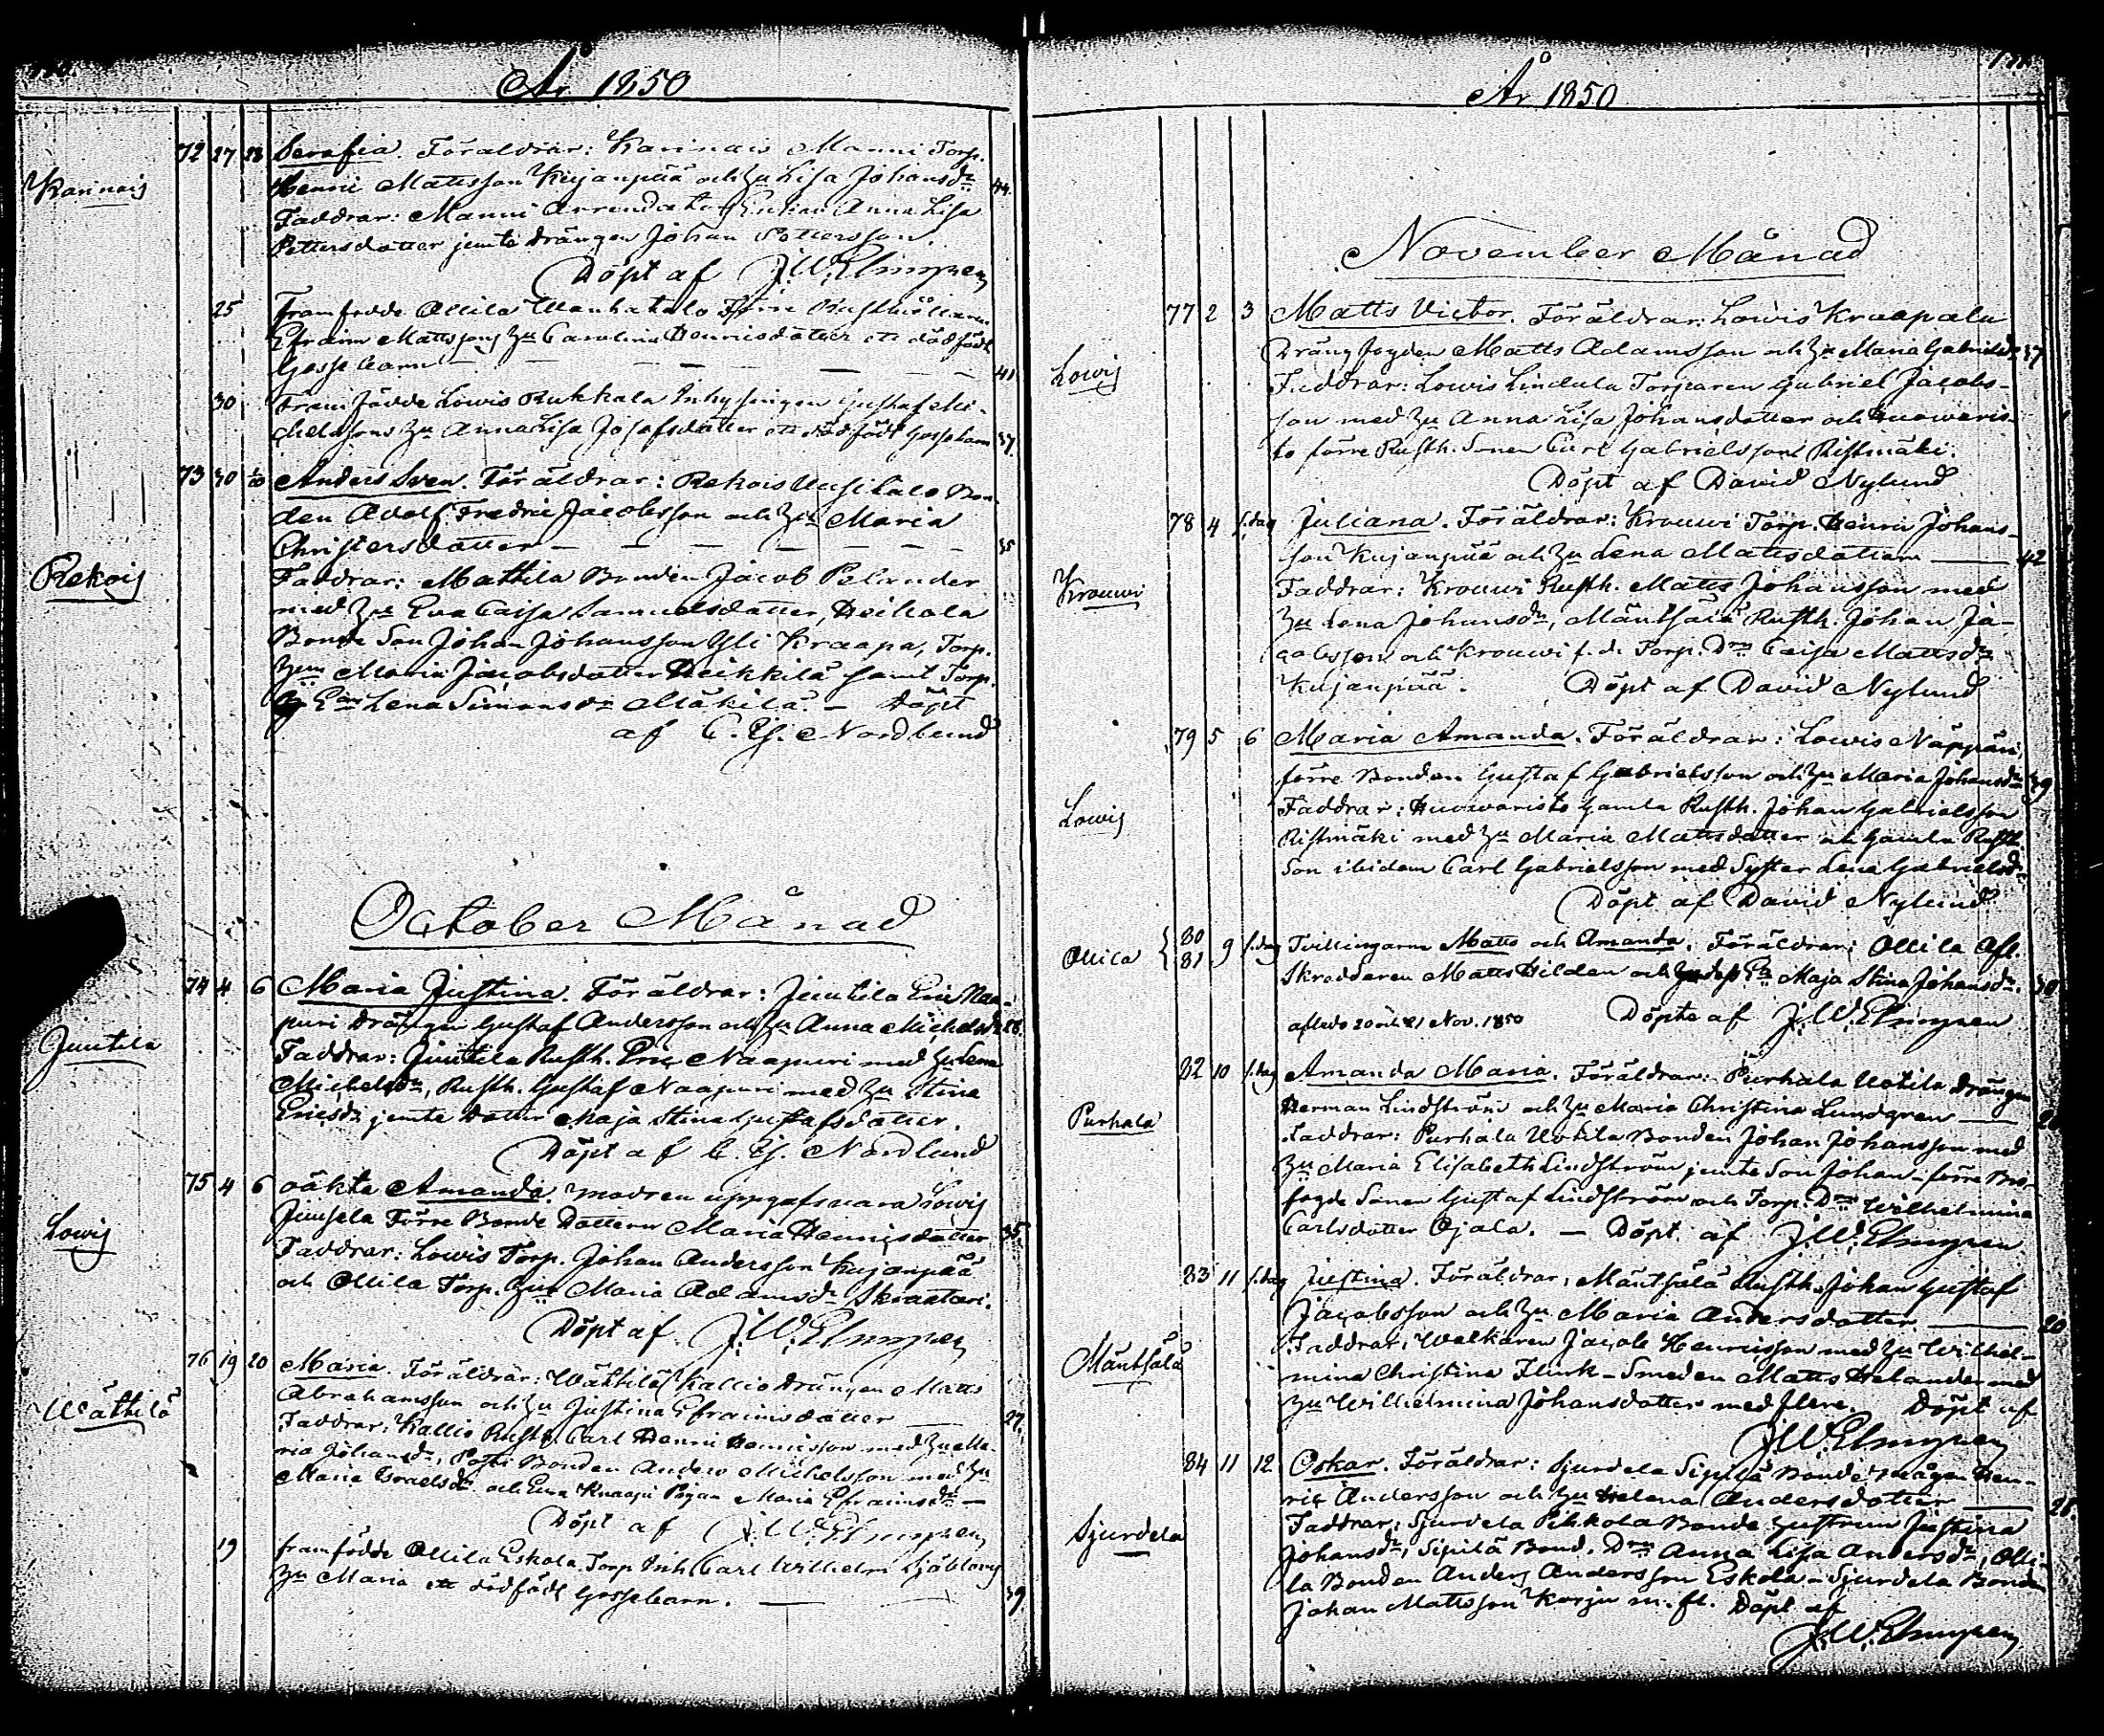 År 1850
Karinais
72 27 28 Serafia. Föräldrar: Karinais Manni Torp.
Henric Mattsson Kujanpää och hu Lisa Johansdr 44.
Faddrar: Manni Arrendators Enkan Anna Lisa
Pettersdotter jemte drängen Johan Pettersson.
Döpt af J.W. Elmgren
25 Framfödde Ollila Wanhatalo Förre Rusthållaren
Efraim Mattssons hu Carolina Henricsdotter ett dödfödt
Gosse barn 41
30 Framfödde Lowis Rukkala Inhysingen Gustaf Mi-
chelssons hu Anna Lisa Josefsdotter ett dödfödt gossebarn 37
Rekois
73 30 Anders Sven. Föräldrar: Rekois Uusitalo Bon-
den Adolf Fredric Jacobsson och hu Maria
Christersdotter 35
Faddrar: Mattila Bonden Jacob Pelander
med hu Eva Caisa Samuelsdotter, Heikola
Bonde Son Johan Johansson Yli Kraapa, Torp.
hun Maria Jacobsdotter Heikkilä samt Torp.
Lena Simonsdr Mäkilä. – Döpt
af C. Ej. Nordlund
October Månad
Juutila
74 4 6 Maria Justina. Föräldrar: Juutila Eric Naa-
puri Drängen Gustaf Andersson och hu Anna Michelsdr 28.
Faddrar: Juutila Rusth. Eric Naapuri med hu Lena
Michelsdr, Rusth. Gustaf Naapuri med hu Stina
Ericsdr jemte dotter Maja Stina Gustafsdotter.
Döpt af C. Ej. Nordlund
Lowis
75 4 6 oäkta Amanda. modren uppgafs vara Lowis
Juusela Förre Bonde Dottern Maria Henricsdotter 35.
Faddrar: Lowis Torp. Johan Andersson Kujanpää
och Ollila Torp. hun Maria Adamsdr Skraatari.
Döpt af J.W. Elmgren
Wättilä
76 19 20 Maria. Föräldrar: Wättilä Kallio Drängen Matts
Abrahamsson och hu Justina Efraimsdotter 27.
Faddrar: Kallio Rusth. Carl Henric Henricsson med hu Ma-
ria Johansdr, Posti Bonden Anders Michelsson med hu
Maria Israelsdr och Knaapi Pigan Maria Efraimsdr –
Döpt af J.W. Elmgren
19 framfödde Ollila Eskola Torp. Inh. Carl Wilhelm Sjöbloms
hu Maria ett dödfödt Gossebarn. 39.
År 1850
November Månad
Lowis
77 2 3 Matts Victor. Föräldrar: Lowis Kraapala
Drängfogden Matts Adamsson och hu Maria Gabrielsdr 37
Faddrar: Lowis Lindula Torparen Gabriel Jacobs-
son med hu Anna Lisa Johansdotter och Huowaris-
to förre Rusth. Sonen Carl Gabrielsson Ristimäki.
Döpt af David Nylund
Krouwi
78 4 s.dag Juliana. Föräldrar: Krouwi Torp. Henric Johans-
son Kujanpää och hu Lena Mattsdotter 42
Faddrar: Krouwi Rusth. Matts Johansson med
hu Lena Johansdr, Mäntsälä Rusth. Johan Ja-
cobsson och Krouwi f. d. Torp. Dr Caisa Mattsdr
Kujanpää. Döpt af David Nylund
Lowis
79 5 6 Maria Amanda. Föräldrar: Lowis Näppäri
förre Bonden Gustaf Gabrielsson och hu Maria Johansdr 39
Faddrar: Huowaristo Gamla Rusth. Johan Gabrielsson
Ristimäki med hu Maria Mattsdotter och Gamla Rusth.
Son ibidem Carl Gabrielsson med Syster Lena Gabrielsdr
Döpt af David Nylund
Ollila
80 81 9 s.dag Tvillingarne Matts och Amanda. Föräldrar: Ollila Afl.
Skreddaren Matts Hilden och Maja Stina Johansdr. 30
afledo 20 och 21 Nov. 1850 Döpte af J.W. Elmgren
Purhala
82 10 s.dag Amanda Maria. Föräldrar: Purhala Uotila drängen
Herman Lindström och hu Maria Christina Lundgren
Faddrar: Purhala Uotila Bonden Johan Johansson med
hu Maria Elisabeth Lindström jemte Son Johan – förre Bro-
fogde Sonen Gustaf Lindström och Torp. Dr Wilhelmina
Carlsdotter Ojala. – Döpt af J.W. Elmgren
Mäntsälä
83 11 s.dag Justina. Föräldrar: Mäntsälä Rusth. Johan Gustaf
Jacobsson och hu Maria Andersdotter. 20
Faddrar: Walkaren Jacob Henricsson med hu Wilhel-
mina Christina Flink – Smeden Matts Helander med
hu Wilhelmina Johansdotter med flere. Döpt af
J.W. Elmgren
Sjurdela
84 11 12 Oskar. Föräldrar: Sjurdela Sipilä Bonde mågen Hen-
ric Andersson och hu Helena Andersdotter 28.
Faddrar: Sjurdela Pikkola Bonde hustrun Justina
Johansdr, Sipilä Bond. Dr Anna Lisa Andersdr, Olli-
la Bonden Anders Andersson Eskola – Sjurdela Bonden
Johan Mattsson Karju m. fl. Döpt af
J.W. Elmgren